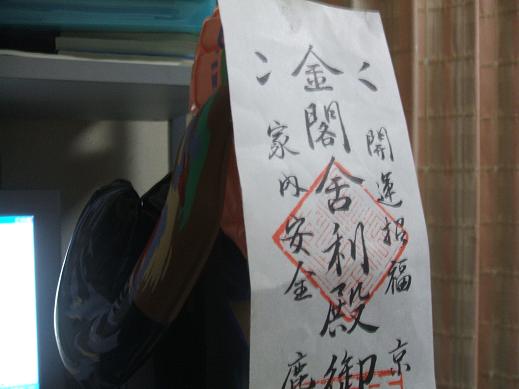 開運招福
京
金閣舎利殿御
家内安全
鹿